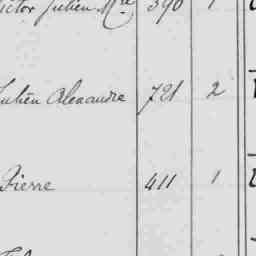 ictor Julien Mie 390 1
Julien Alexandre 721 2
Pierre 411 1